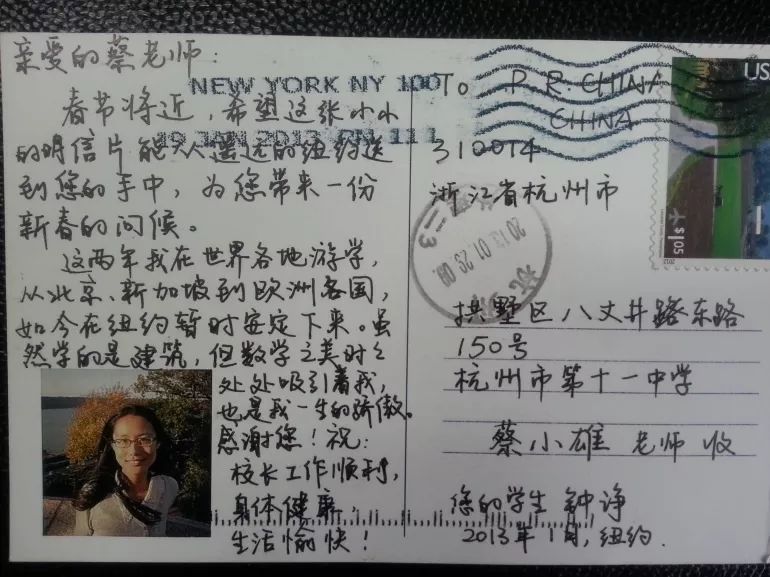 亲爱的蔡老师:
春节将近,希望这张小小
的明信片能从遥远的纽约送
到您的手中,为您带来一份
新春的问候。
这两年我在世界各地游学,
从北京、新加坡到欧洲各国,
如今在纽约暂时安定下来。虽
然学的是建筑,但数学之美时时
处处吸引着我,
也是我一生的骄傲。
感谢您!祝:
校长工作顺利,
身体健康,
生活愉快!
NEW YORK NY 100
29 JAN 2013 PM 11 L
TO P.R. CHINA
CHINA
310014
浙江省杭州市
拱墅区八丈井路东路
150号
杭州市第十一中学
蔡小雄 老师 收
您的学生 钟诤
2013年1月,纽约.
US
$1.05
2012
2013.01.29.09
杭州